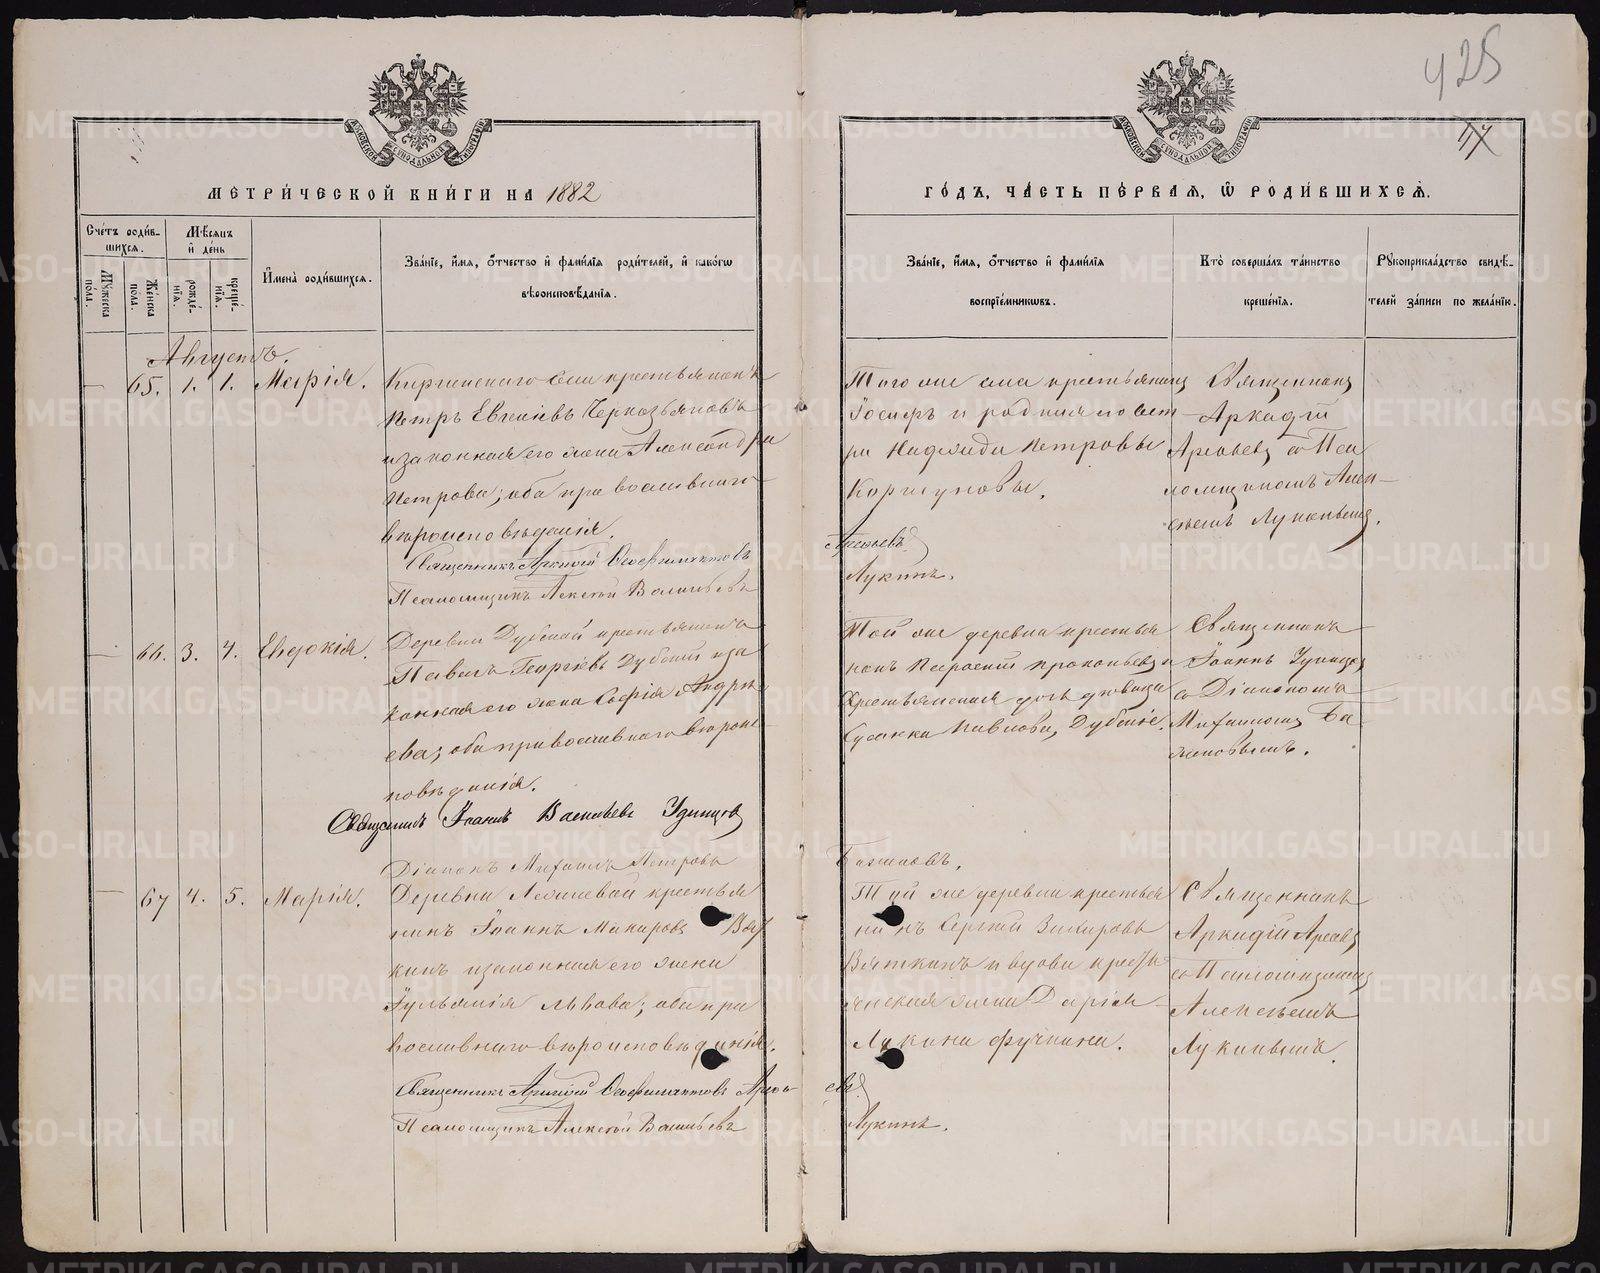 425
МЕТРИ́ЧЕСКОЙ КНИ́ГИ НА 1882
ГО́ДЪ, ЧА́СТЬ ПЕ́РВАѦ, Ѽ РОДИ́ВШИХСѦ.
Сче́тъ роди́в-
шихся.
Мѣ́сяцъ
и҆ де́нь
Мꙋ́жеска
по́ла.
Же́нска
по́ла.
рожде́-
нїя.
креще́-
нїя.
И҆мена̀ роди́вшихся.
Зва́нїе, и҆́мя, ѻ҆́тчество и҆ фами́лїя роди́телей, и҆ како́гѡ
вѣроисповѣ́данїя.
Зва́нїе, и҆́мя, ѻ҆́тчество и҆ фами́лїя
воспрїе́мникѡвъ.
Кто̀ соверша́лъ та́инство
креще́нїя.
Рꙋкоприкла́дство свидѣ́-
телей за́писи по жела́нїю.
Августъ.
65. 1. 1. Марія.
крестьянинъ
Петръ Евгеніевъ
изаконная его жена Александра
Петрова; оба православнаго
вѣроисповѣданія.
Священникъ Аркадій Ѳеофилактовъ
Псаломщикъ Алексѣй Васильевъ
Того же села крестьянинъ
Іосифъ и родная его сест-
ра Надежда Петровы
Коршуновы.
Арефьевъ
Лукинъ.
Священникъ
Аркадій
Арефьевъ со Пса
ломщикомъ Алек-
сѣемъ Лукинымъ.
66. 3. 4. Евдокія.
Деревни Дубской крестьянинъ
Павелъ Георгіевъ Дубскій иза
конная его жена Софія Андре
ева; оба православнаго вѣроис
повѣданія.
Священникъ Іоаннъ Васильевъ Удинцовъ
Діаконъ Михаилъ Петровъ
Баженовъ.
Той же деревни крестья
нинъ Прокопьевъ и
Крестьянская дочь дѣвица
Павлова, Дубскіе.
Священникъ
Іоаннъ Удинцовъ
со Діакономъ
Михаиломъ Ба
женовымъ.
67 4. 5. Марія.
Деревни крестья
нинъ Іоаннъ Макаровъ Вят
кинъ изаконная его жена
Іульянія Львова; оба пра
вославнаго вѣроисповѣданія.
Священникъ Аркадій Ѳеофилактовъ Арефь-
Псаломщикъ Алексѣй Васильевъ
Той же деревни крестья
нинъ Сергѣй
Вяткинъ и вдова кресть
янская жена Дарія
Лукина
евъ
Лукинъ.
Священникъ
Аркадій Арефьевъ
со Псаломщикомъ
Алексѣемъ
Лукинымъ.
METRIKI.GASO-URAL.RU